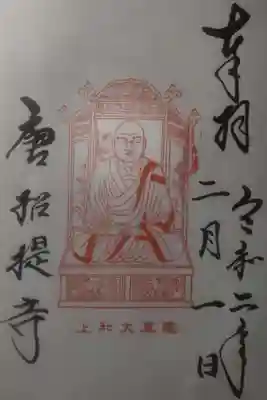 奉拝
令和二年
二月一日
大和上
唐招提寺